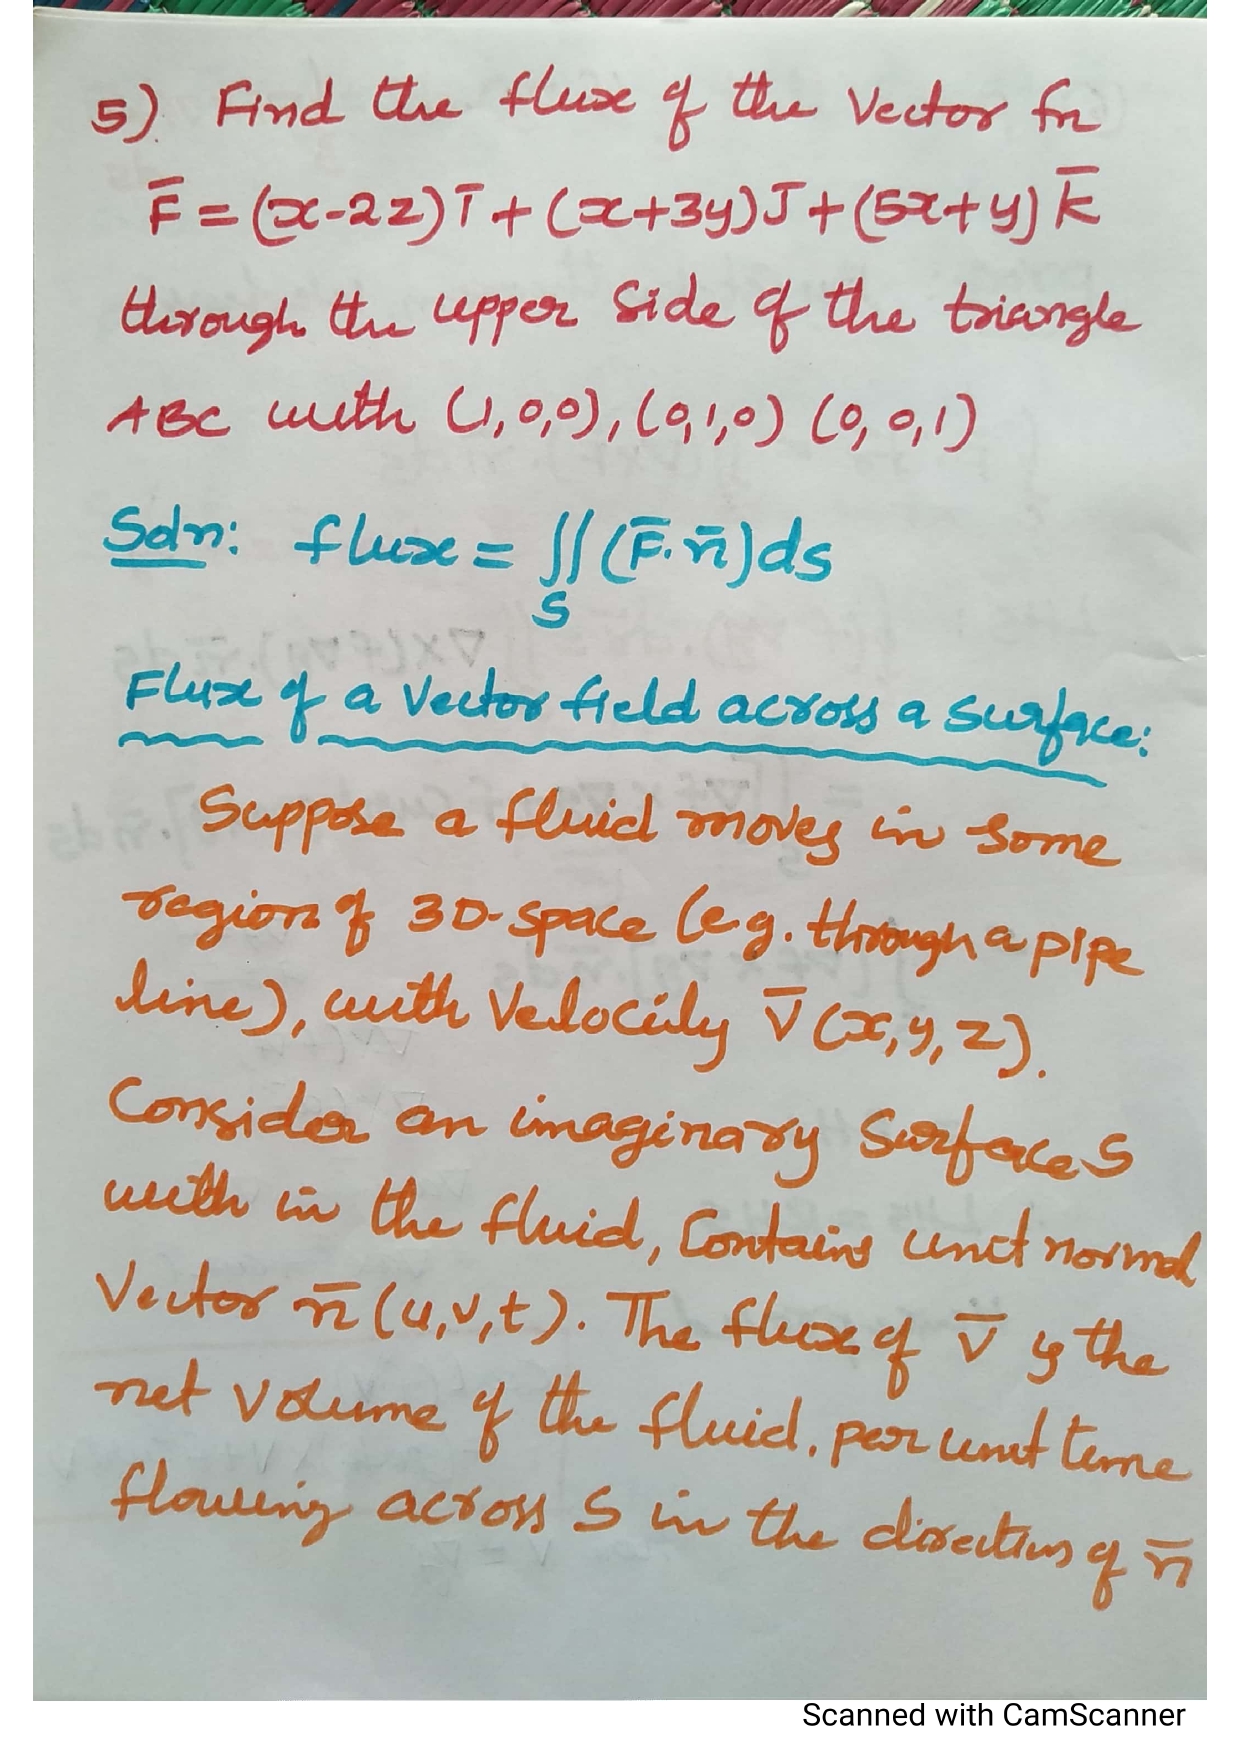 5). Find the flux of the vector fn
F̅ = (x-2z) i̅ + (x+3y) J̅ + (5x+y) k̅
through the upper side of the triangle
ABC with (1,0,0), (0,1,0) (0,0,1)
Soln: flux = ∬ (F̅. n̅)ds
S
Flux of a vector field across a surface:
Suppose a fluid moves in some
region of 3D-space (e.g. through a pipe
line), with velocity V̅ (x,y,z).
Consider an imaginary Surface S
with in the fluid, Contains unit normal
Vector n̅ (u,v,t). The flux of V̅ is the
net volume of the fluid, per unit time
flowing across S in the direction of n̅
Scanned with CamScanner